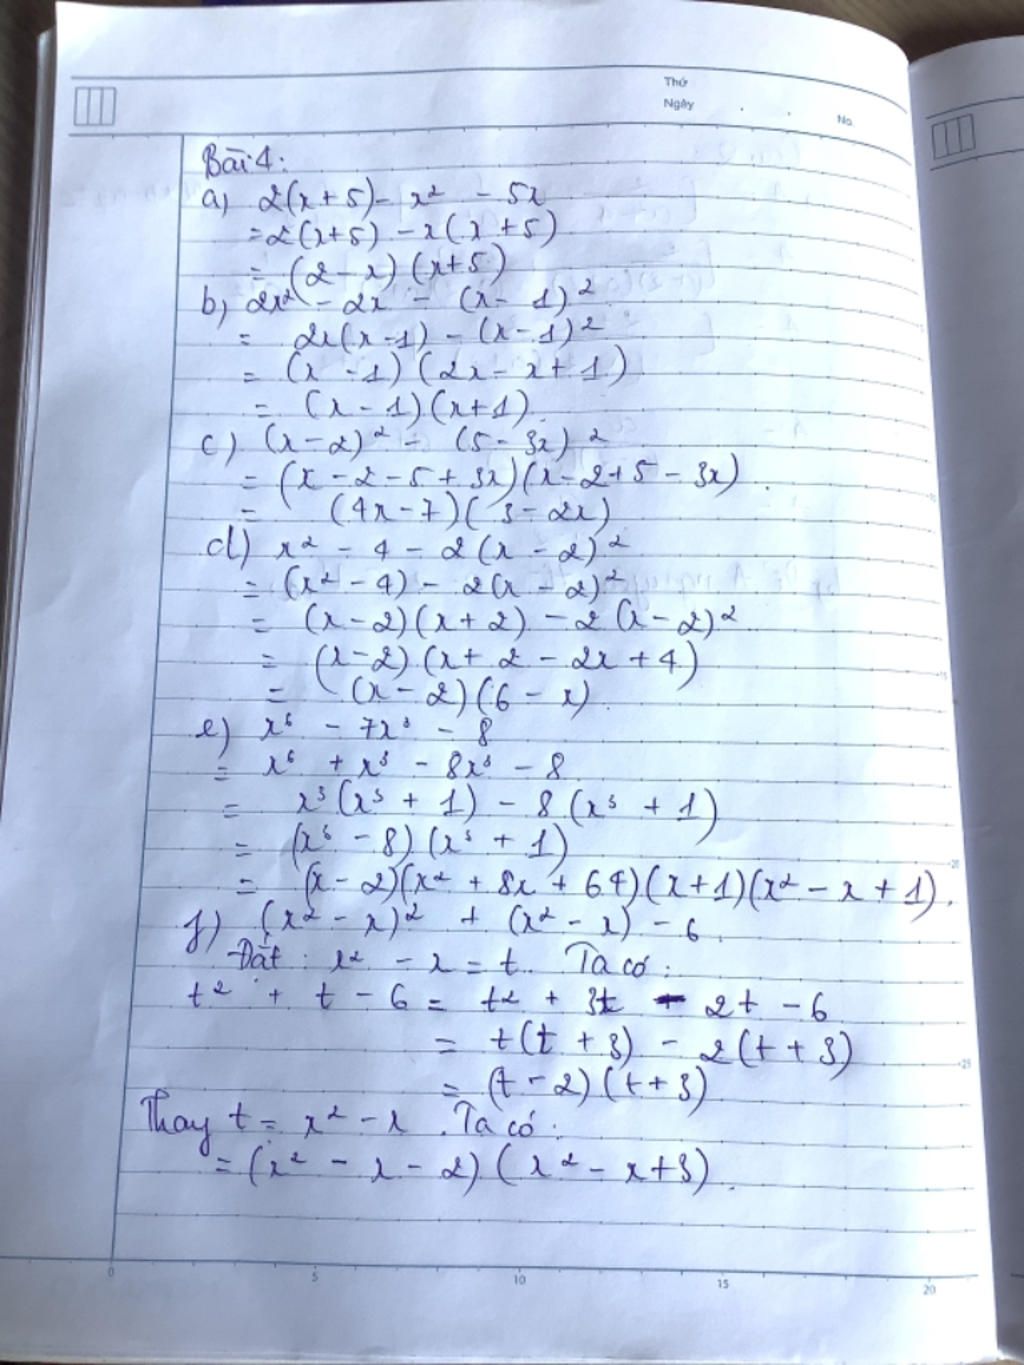 Thứ
Ngày
No.
Bài 4:
a) 2(x+5) - x² - 5x
= 2(x+5) - x(x+5)
= (2-x)(x+5)
b) 2x² - 2x - (x-1)²
= 2x(x-1) - (x-1)²
= (x-1)(2x-x+1)
= (x-1)(x+1).
c) (x-2)² - (5-3x)²
= (x-2-5+3x)(x-2+5-3x).
= (4x-7)(3-2x)
d) x² - 4 - 2(x-2)²
= (x²-4) - 2(x-2)²
= (x-2)(x+2) - 2(x-2)²
= (x-2)(x+2-2x+4)
= (x-2)(6-x).
e) x⁶ - 7x³ - 8
= x⁶ + x³ - 8x³ - 8
= x³(x³+1) - 8(x³+1)
= (x³-8)(x³+1)
= (x-2)(x²+8x+64)(x+1)(x²-x+1).
f) (x²-x)² + (x²-x) - 6.
Đặt: x² - x = t. Ta có:
t² + t - 6 = t² + 3t - 2t - 6
= t(t+3) - 2(t+3)
= (t-2)(t+3)
Thay t = x² - x. Ta có:
= (x²-x-2)(x²-x+3).
0 5 10 15 20